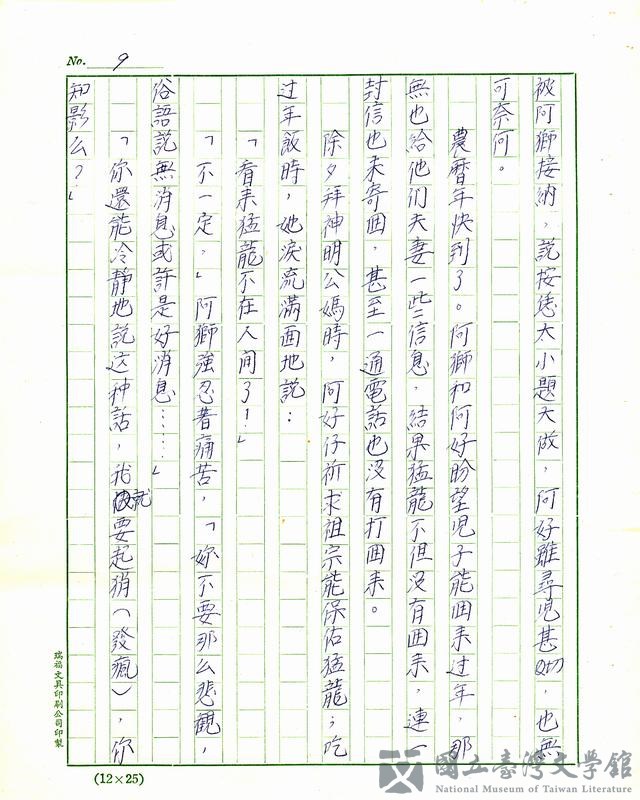 No. 9
被阿獅接納，說按恁太小題大做，阿好雖尋兒甚切，也無
可奈何。
農曆年快到了。阿獅和阿好盼望兒子能回来过年，那
無也給他们夫妻一些信息，結果猛龍不但没有回来，連一
封信也未寄回，甚至一通電話也没有打回来。
除夕拜神明公媽時，阿好仔祈求祖宗能保佑猛龍；吃
过年飯時，她淚流滿面地説：
「看来猛龍不在人间了！」
「不一定，」阿獅強忍着痛苦，「妳不要那么悲觀，
俗語説無消息或許是好消息……」
「你還能冷靜地説这种話，我就要起痟（發瘋），你
知影么？」
瑞福文具印刷公司印製
(12×25)
國立臺灣文學館
National Museum of Taiwan Literature